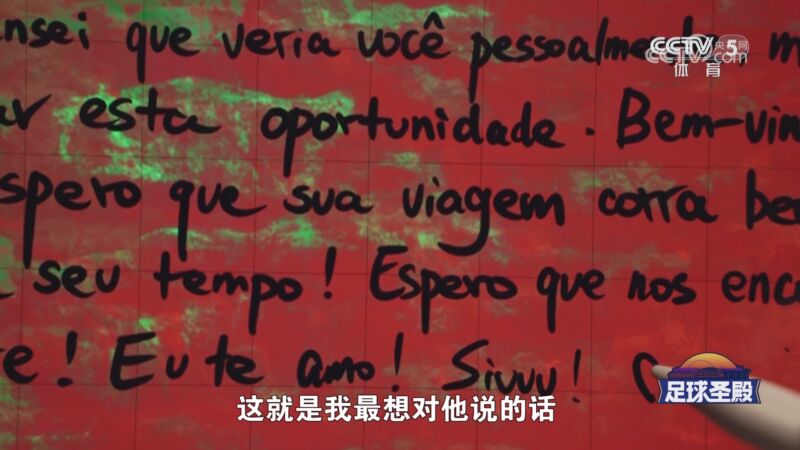 nsei que veria você pessoalmente, m
ar esta oportunidade. Bem-vin
spero que sua viagem corra be
seu tempo! Espero que nos enco
te! Eu te amo! Siuuu!
CCTV 5 央视网
CCTV.com
体育
足球圣殿
这就是我最想对他说的话